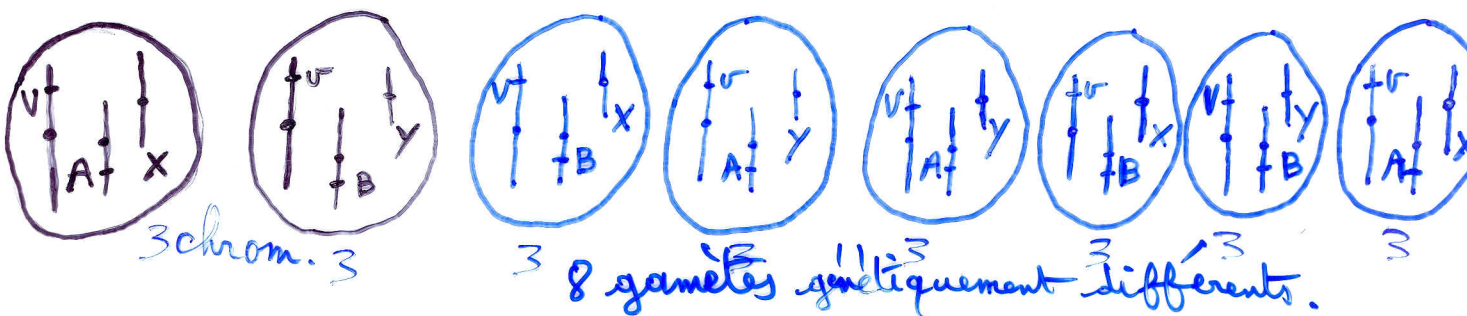 V A X
v B Y
V B X
v A Y
V A Y
v B X
V B Y
v A X
3 chrom. 3 3 3 3 3 3 3
8 gamètes génétiquement différents.